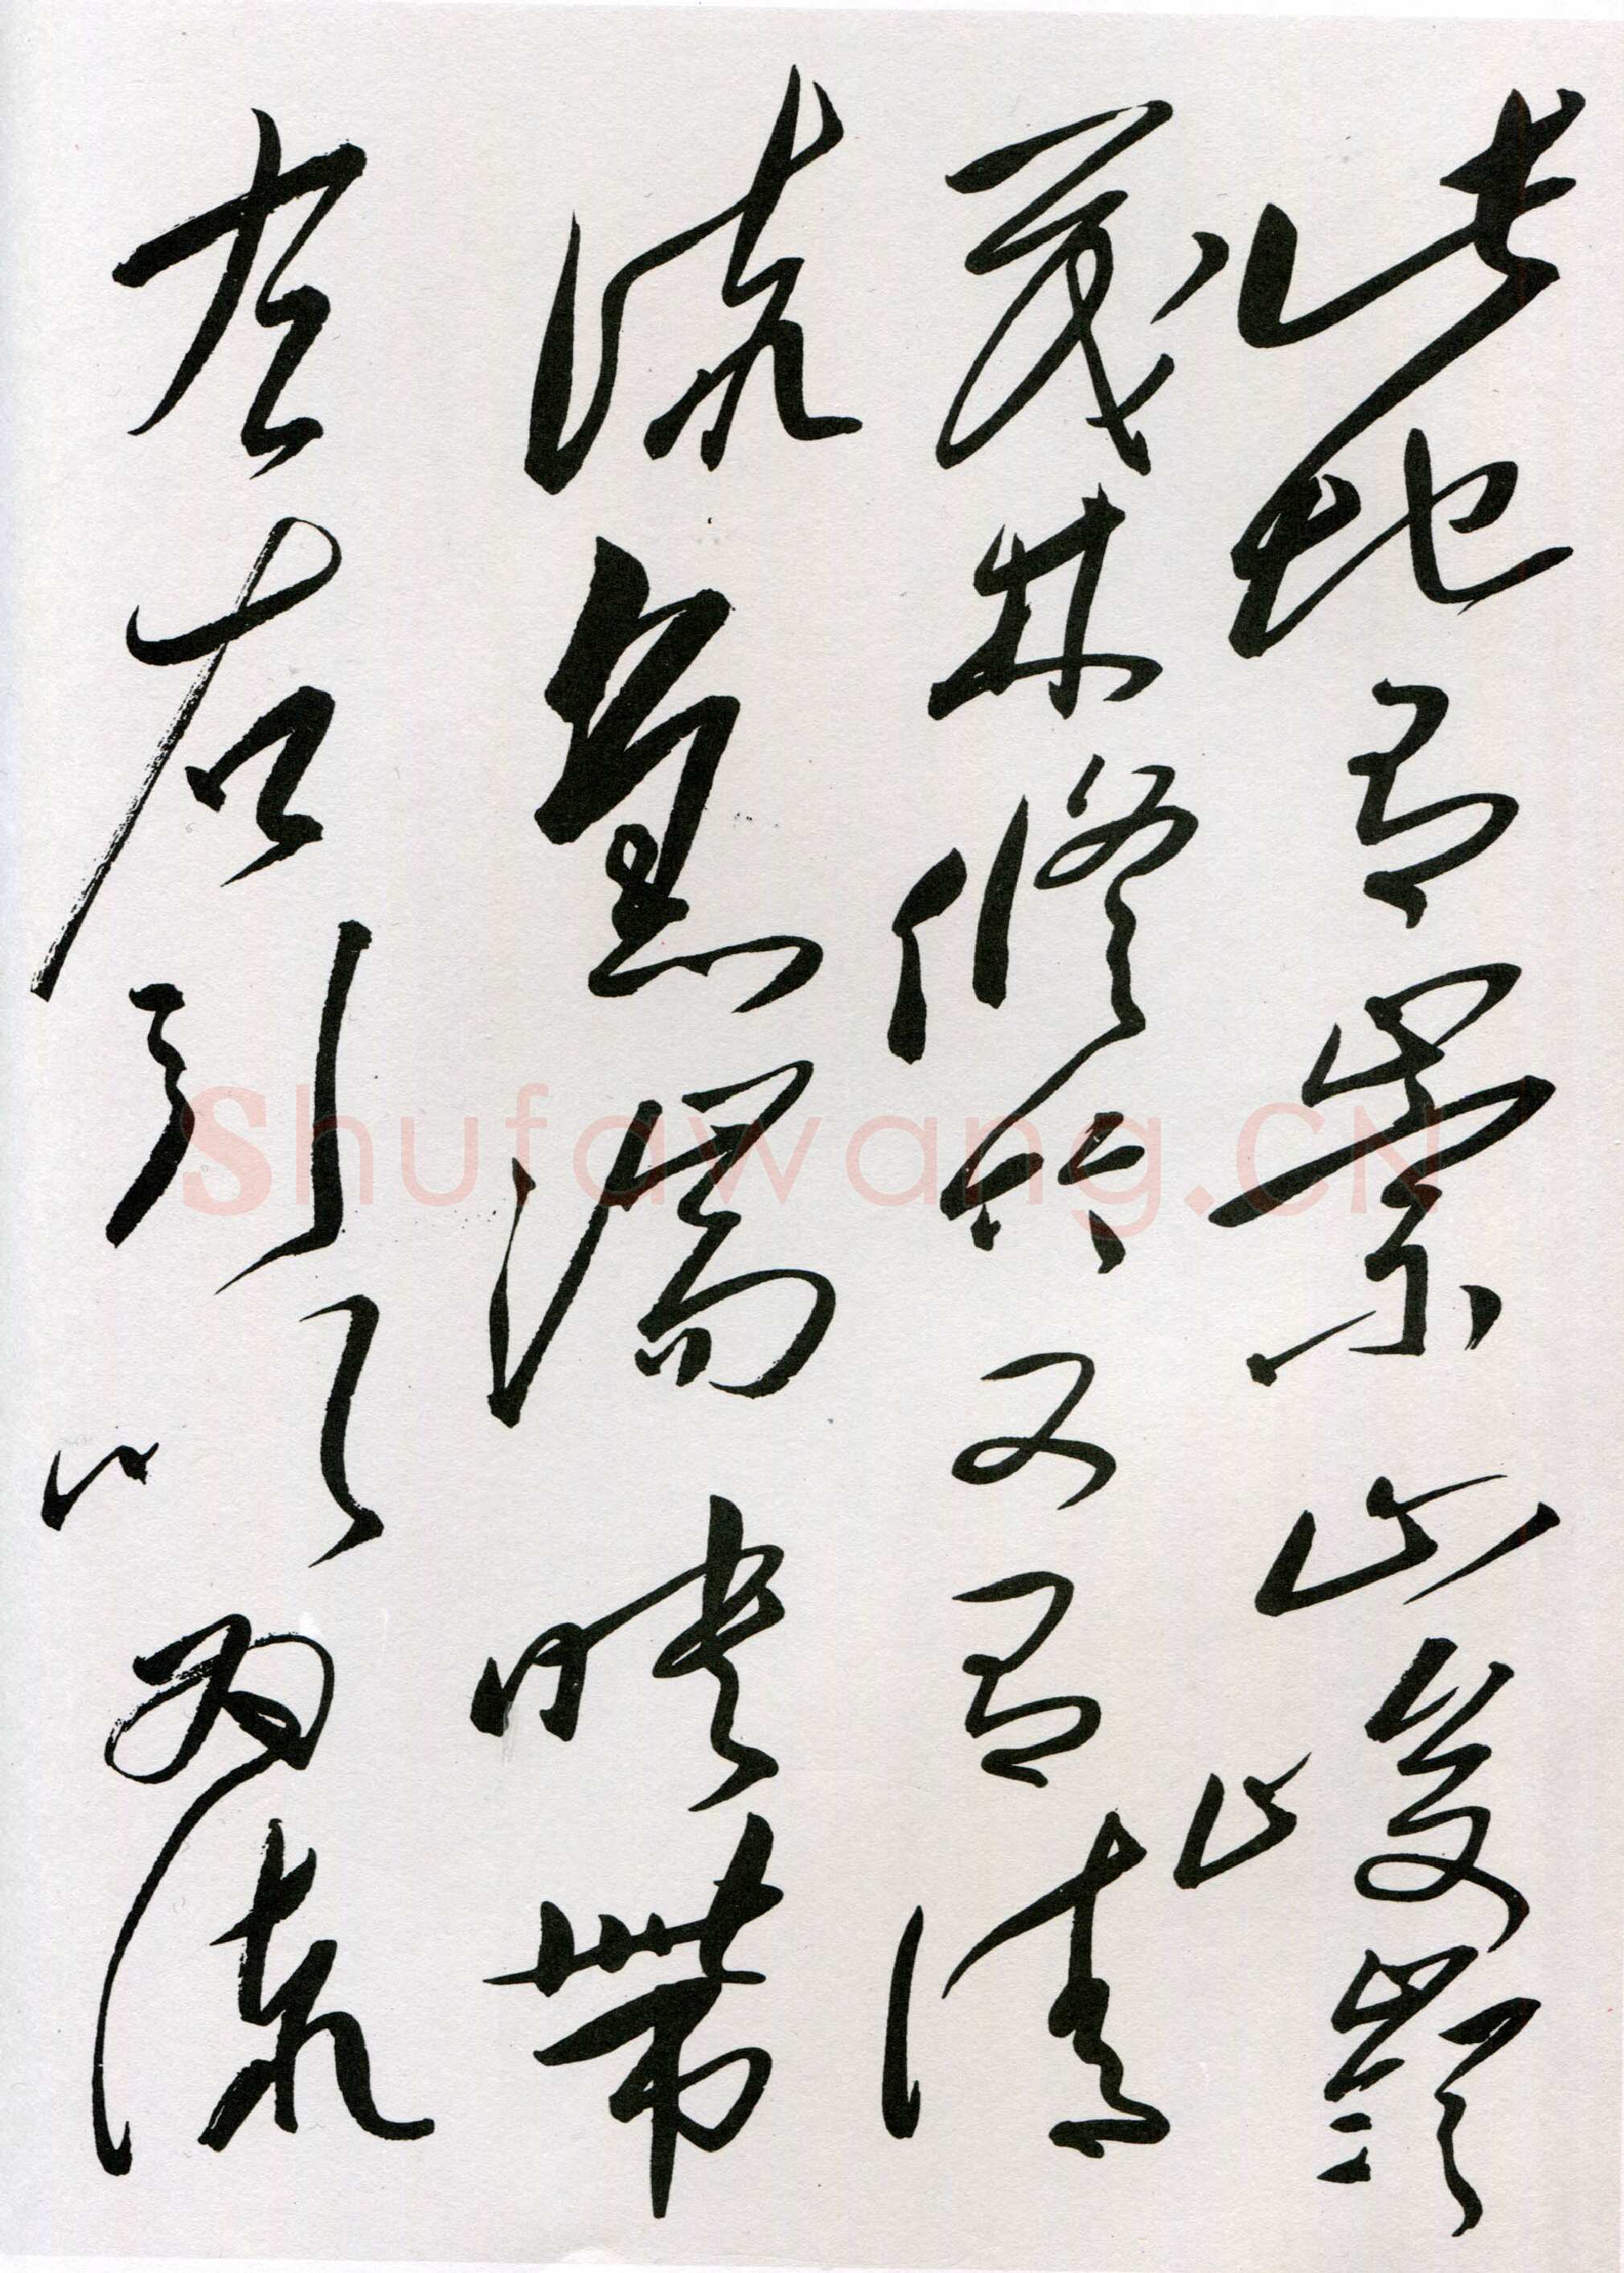 此地有崇山峻嶺
茂林修竹又有清
流急湍映帶
左右引以為流
Shufawang.CN